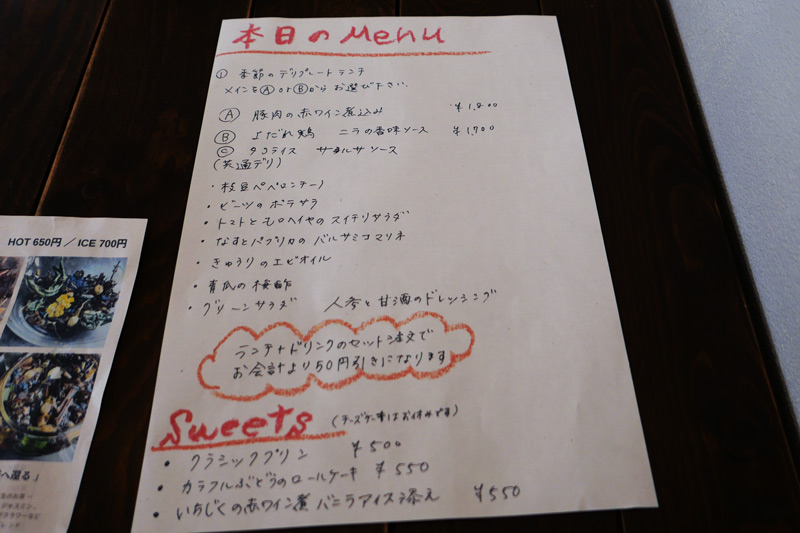 本日のMenu
① 季節のデリプレートランチ
メインをⒶorⒷからお選び下さい.
Ⓐ 豚肉の赤ワイン煮込み ¥1,800
Ⓑ よだれ鶏 ニラの香味ソース ¥1,700
Ⓒ タコライス サルサソース
(共通デリ)
・枝豆ペペロンチーノ
・ビーツのポテサラ
・トマトとモロヘイヤのスイチリサラダ
・なすとパプリカのバルサミコマリネ
・きゅうりのエビオイル
・青瓜の梅酢
・グリーンサラダ 人参と甘酒のドレッシング
ランチ+ドリンクのセット注文で
お会計より50円引きになります
Sweets (チーズケーキはお休みです)
・クラシックプリン ¥500
・カラフルぶどうのロールケーキ ¥550
・いちじくの赤ワイン煮 バニラアイス添え ¥550
HOT 650円／ICE 700円